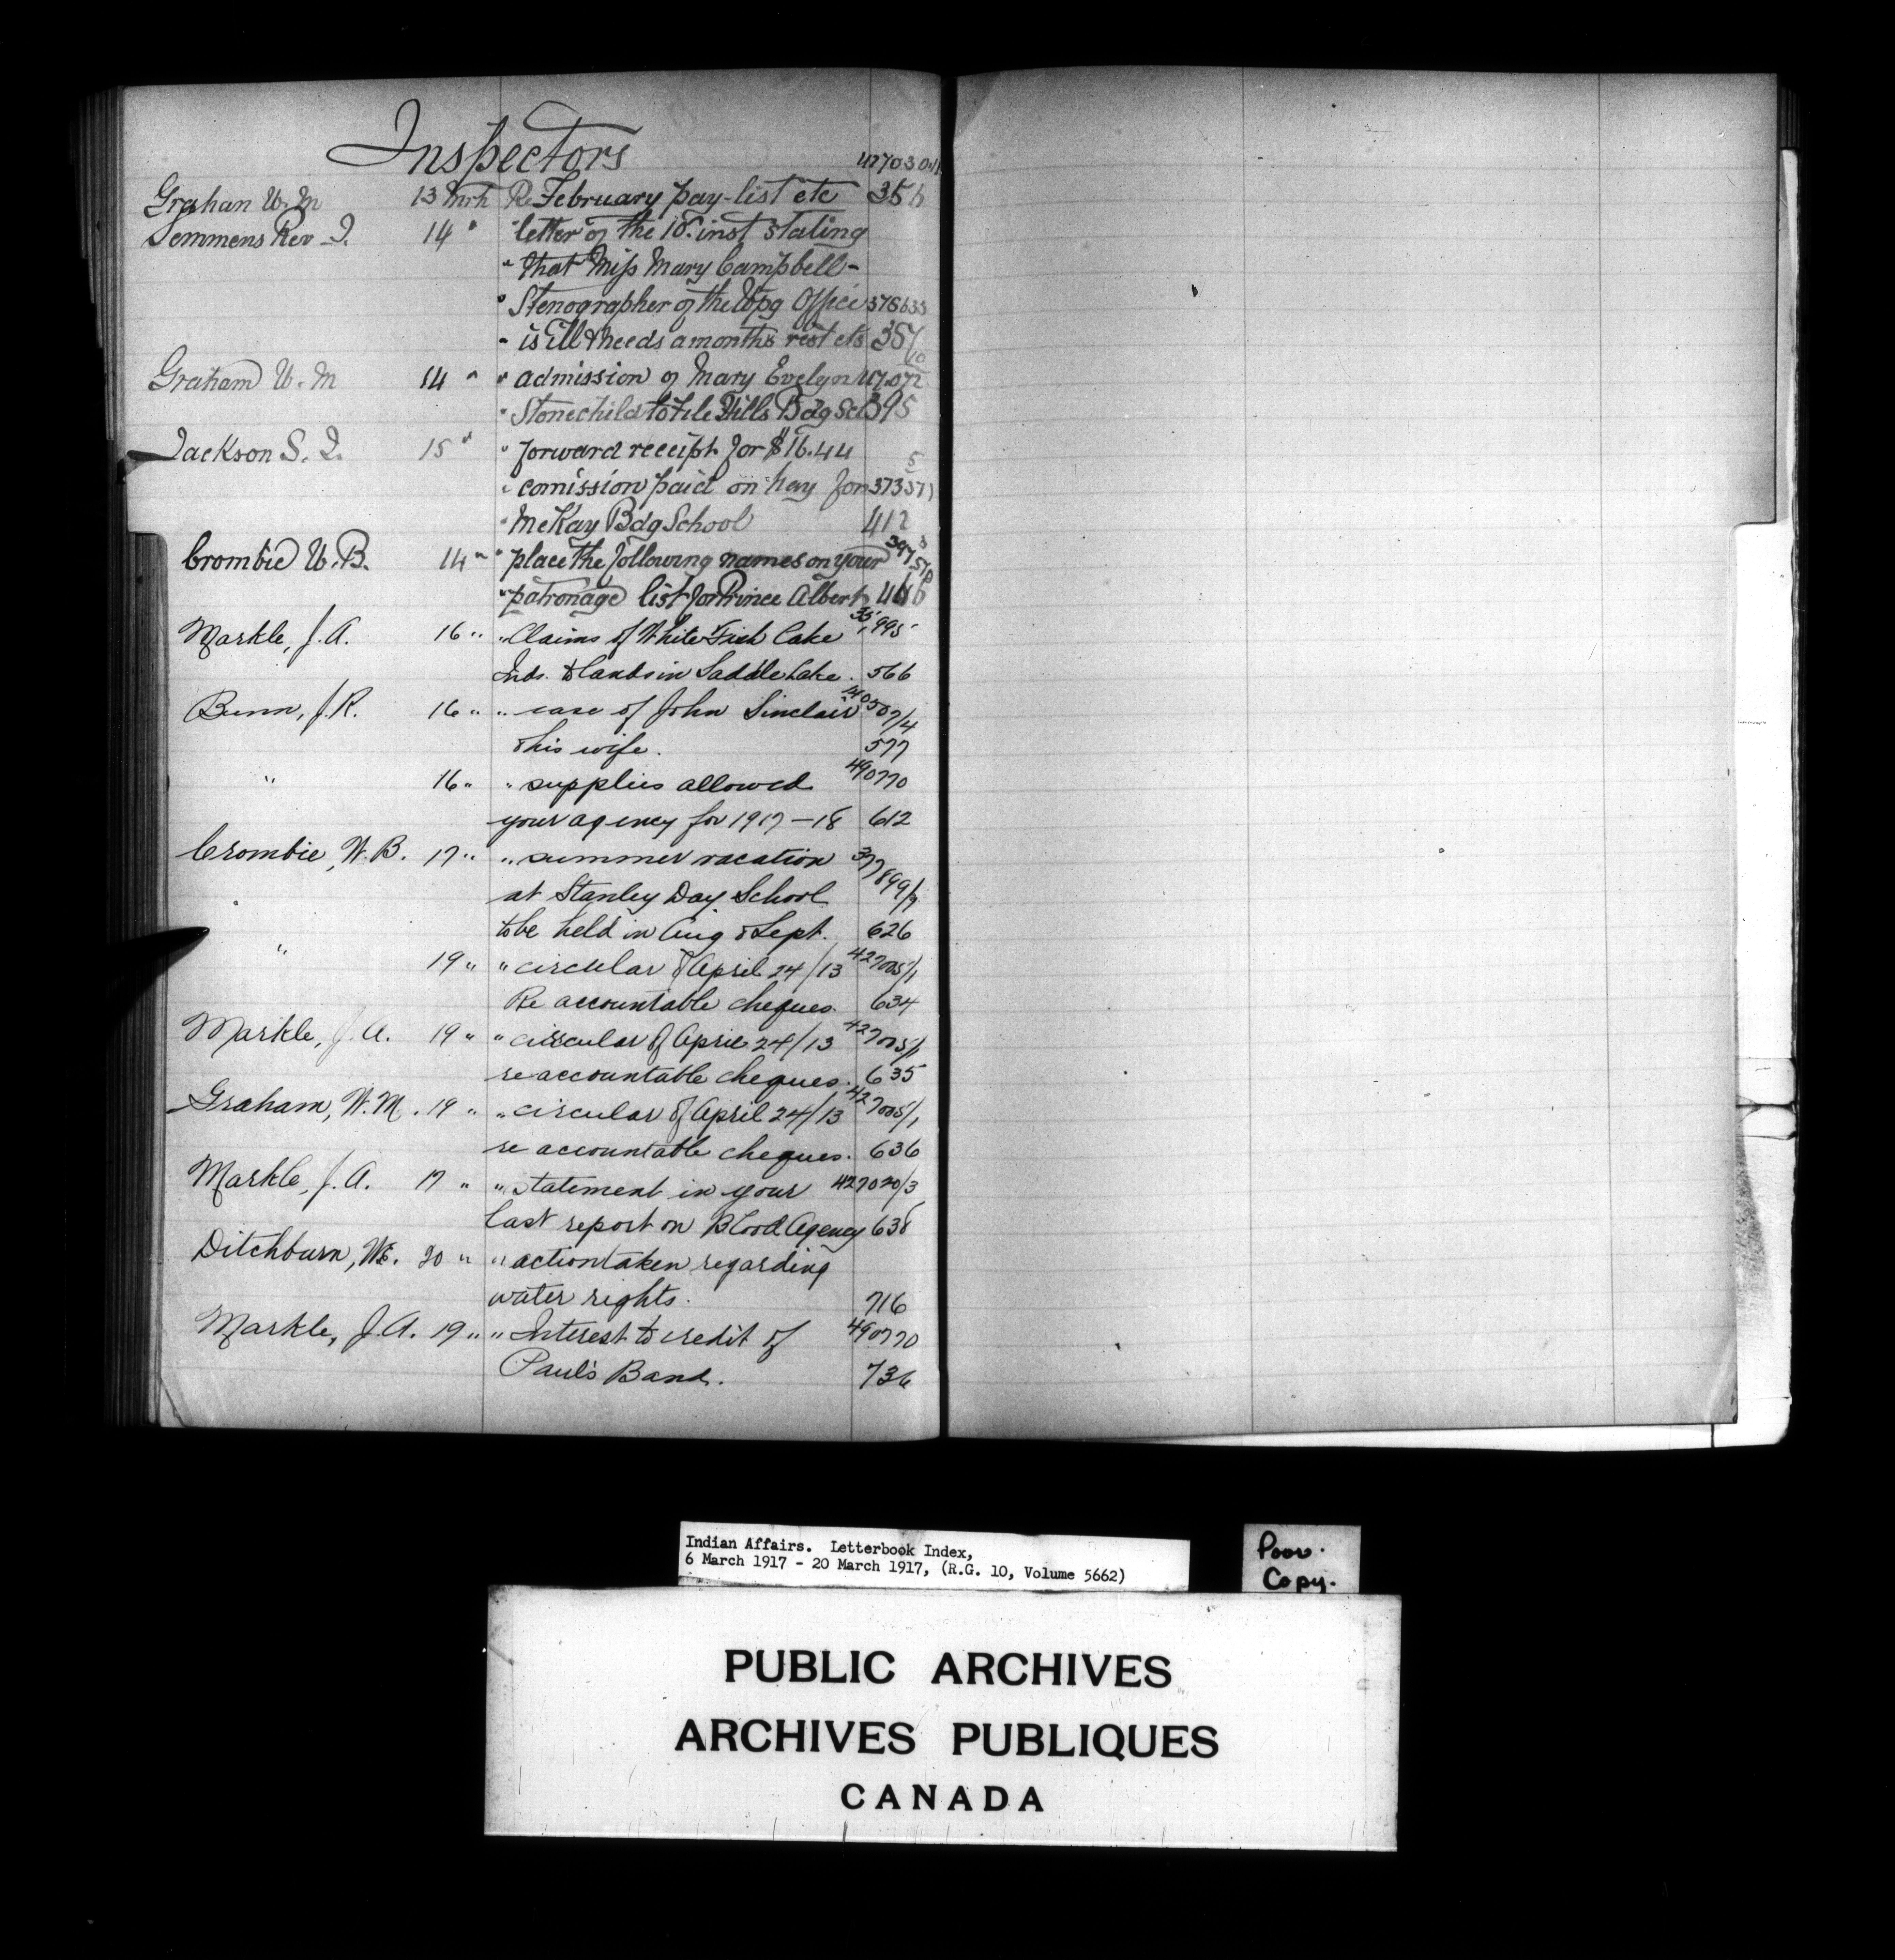 Inspectors
427030-1
Grahan W. M 13 Mrh Re February pay-list etc 356
Semmens Rev J. 14 " " letter of the 10. inst stating
" that Miss Mary Campbell-
" Stenographer of the Wpg Office 378633
" is ill & needs a months rest etc 357
10
Graham W. M 14 " " admission of Mary Evelyn 117.072
" Stonechild to File Hills Bdg Scl 395
Jackson S. J. 15 " " forward receipt for $16.44
5
" comission paid on hay for 373571
" McKay Bdg School 412
Crombie W. B. 14 " " place the following names on your
" patronage list for Prince Albert 446
Markle, J. A. 16 " " Claims of White Fish Lake 35,995
Inds. to lands in Saddle Lake. 566
Bunn, J. R. 16 " " case of John Sinclair 140507/4
& his wife. 577
" 16 " " supplies allowed 490770
your agency for 1917-18 612
Crombie, W. B. 17 " " summer vacation 377899/7
at Stanley Day School
to be held in Aug & Sept. 626
" 19 " " circular of April 24/13 427005/1
Re accountable cheques. 634
Markle, J. A. 19 " " circular of April 24/13 427005/1
re accountable cheques. 635
Graham, W. M. 19 " " circular of April 24/13 427005/1
re accountable cheques. 636
Markle, J. A. 17 " " statement in your 427020/3
last report on Blood Agency 638
Ditchburn, W.E. 20 " " action taken regarding
water rights. 716
Markle, J. A. 19 " " Interest to credit of 490770
Paul's Band. 736
Indian Affairs. Letterbook Index,
6 March 1917 - 20 March 1917, (R.G. 10, Volume 5662)
Poor.
Copy.
PUBLIC ARCHIVES
ARCHIVES PUBLIQUES
CANADA